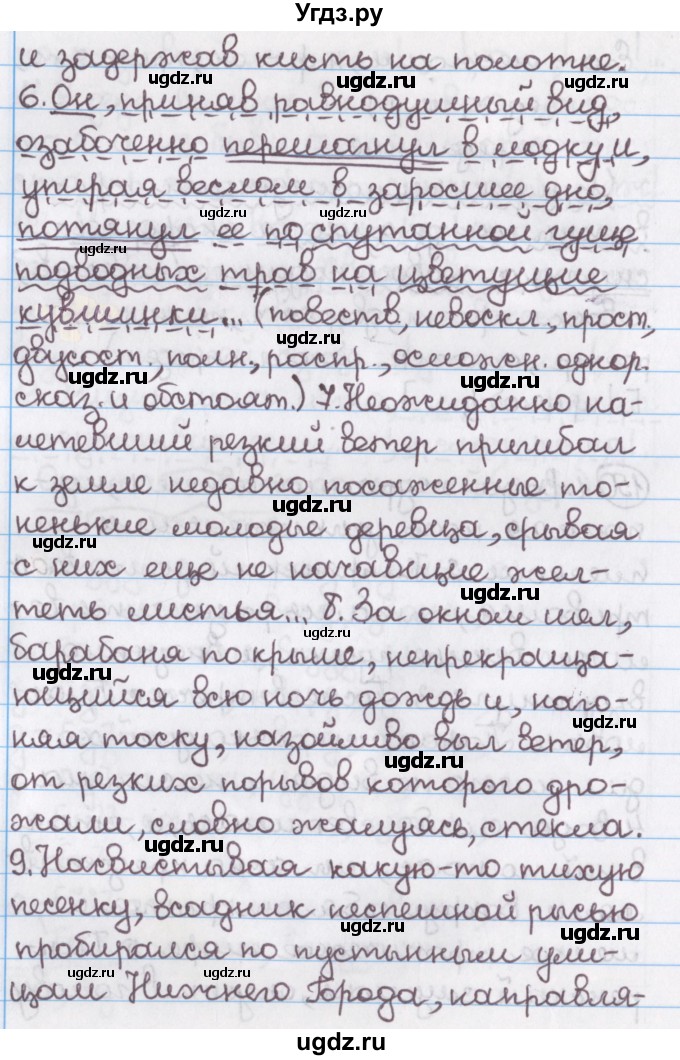 Угдз.ру
и задержав кисть на полотне.
6. Он, приняв равнодушный вид,
озабоченно перешагнул в лодку и,
упирая веслом в заросшее дно,
потянул ее по спутанной гуще
подводных трав на цветущие
кувшинки... (повеств, невоскл, прост,
двусост, полн, распр., осложн. однор.
сказ. и обстоят.) 7. Неожиданно на-
летевший резкий ветер пригибал
к земле недавно посаженные то-
ненькие молодые деревца, срывая
с них еще не начавшие жел-
теть листья... 8. За окном шел,
барабаня по крыше, непрекраща-
ющийся всю ночь дождь и, наго-
няя тоску, назойливо выл ветер,
от резких порывов которого дро-
жали, словно жалуясь, стекла.
9. Насвистывая какую-то тихую
песенку, всадник неспешной рысью
пробирался по пустынным ули-
цам Нижнего Города, направля-
ugdz.ru